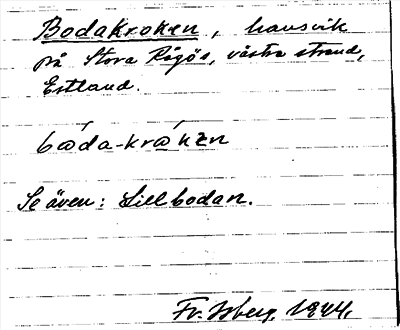 Bodakroken, havsvik
på Stora Rågös, västra strand,
Estland.
bɷ́da-krɷ́ken
Se även: Lillbodan.
Fr. Isberg. 1944.